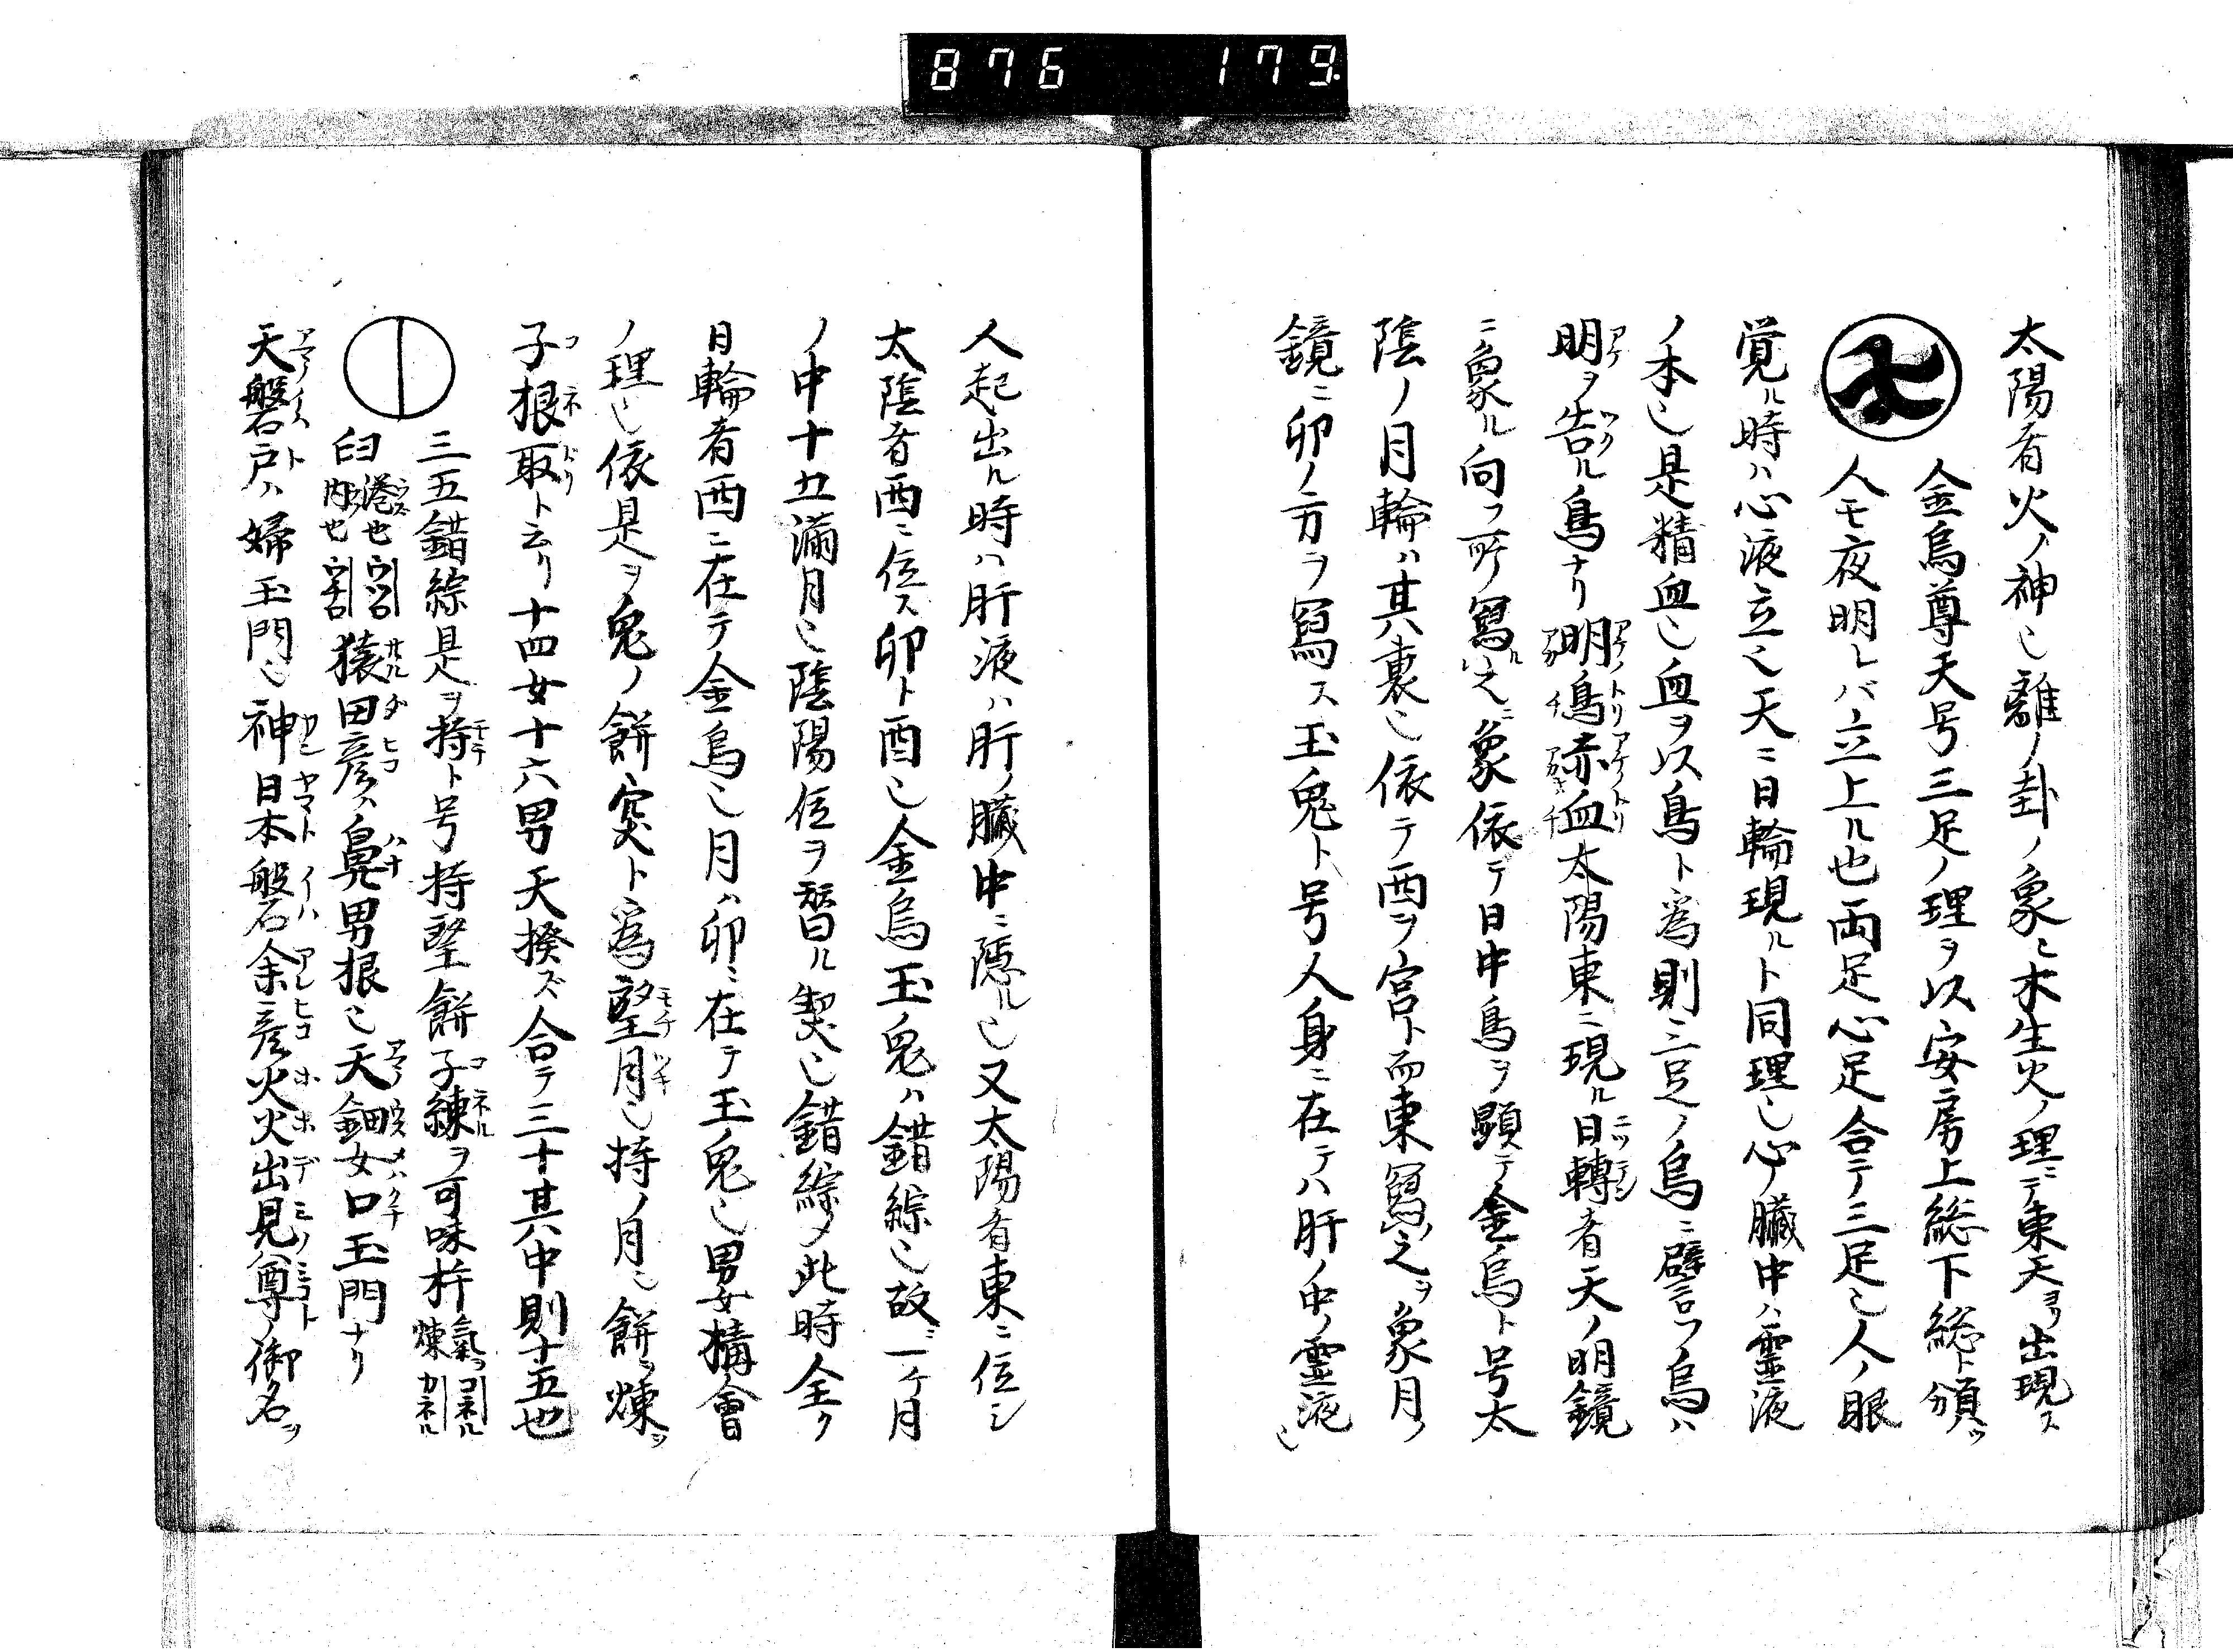 876 179
太陽者火ノ神也離ノ卦ノ象也木生火ノ理ニテ東天ヨリ出現ス
金烏尊天号三足ノ理ヲ以安房上総下総ト頒ツ
人モ夜明レバ立上ル也両足心足合テ三足也人ノ眼
覚ル時ハ心液立也天ニ日輪現ルト同理也心ノ臓中ハ霊液
ノ本也是精血也血ヲ以鳥ト為則三足ノ烏ニ譬フ烏ハ
明ヲ告ル鳥ナリ明鳥赤血太陽東ニ現ル日轉者天ノ明鏡
ニ象ル向フ所寫ル之ニ象依テ日中烏ヲ顕テ金烏ト号太
陰ノ月輪ハ其裏也依テ酉ヲ宮ト而東寫之ヲ象月ノ
鏡ニ卯ノ方ヲ寫ス玉兎ト号人身ニ在テハ肝ノ中ノ霊液也
人起出ル時ハ肝液ハ肝ノ臓中ニ隠ル也又太陽者東ニ位シ
太陰者酉ニ位ス卯ト酉也金烏玉兎ハ錯綜也故ニ一ケ月
ノ中十五満月也陰陽位ヲ替ル契也錯綜メ此時全ク
日輪者酉ニ在テ金烏也月ハ卯ニ在テ玉兎也男女構會
ノ理也依是ヲ兎ノ餅突ト為望月也持ノ月也餅ヲ煉ツ
子根取ト云リ十四女十六男天揆ズ合テ三十其中則十五也
三五錯綜是ヲ持ト号持堅餅子練ヲ可味杵氣ヲコネル煉カネル
臼港也内也猿田彦ハ鼻男根也天鈿女口玉門ナリ
天磐戸ハ婦玉門也神日本磐余彦火火出見尊ノ御名ヲ